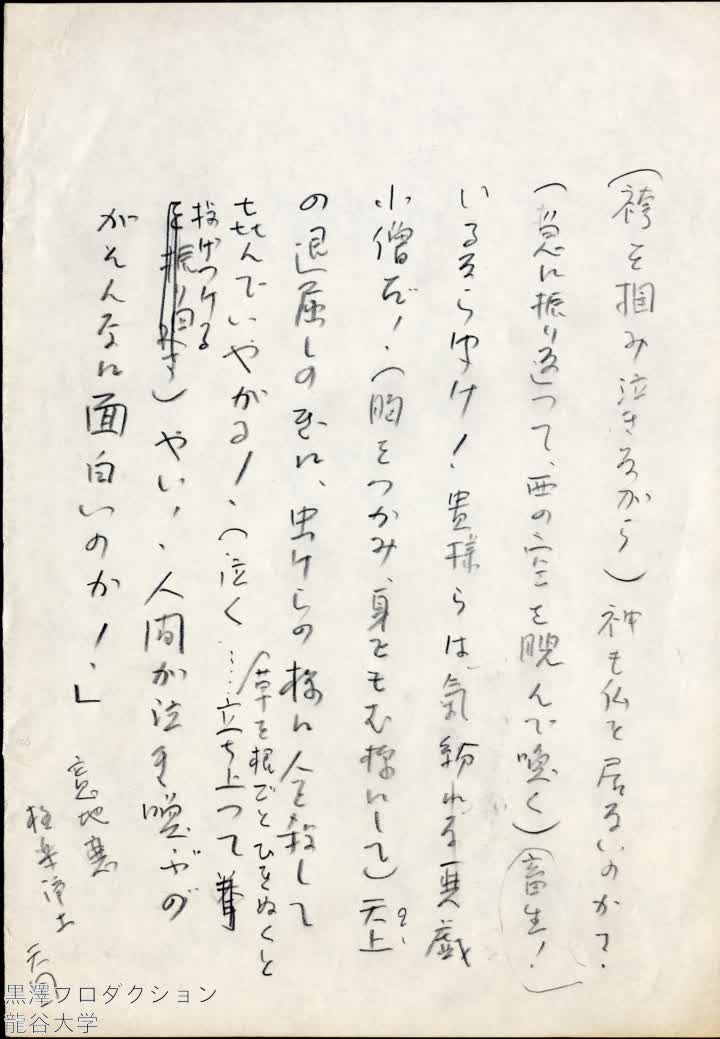 (袴を掴み泣きながら)神も仏も居ないのか?
(急に振り返つて、西の空を睨んで喚く)(畜生!)
いるなら聞け!貴様らは気紛れな悪戯
小僧だ!、(胸をつかみ、身をもむ様にして)天上
の退屈しのぎに、虫けらの様に人を殺して
喜んでいやがる!、(泣く……立ち上つて
草を根ごとひきぬくと
投げつける
を振り廻き)やい!、人間が泣き喚ぶの
がそんなに面白いのか!、」
意地悪
極楽浄土
黒澤プロダクション
龍谷大学